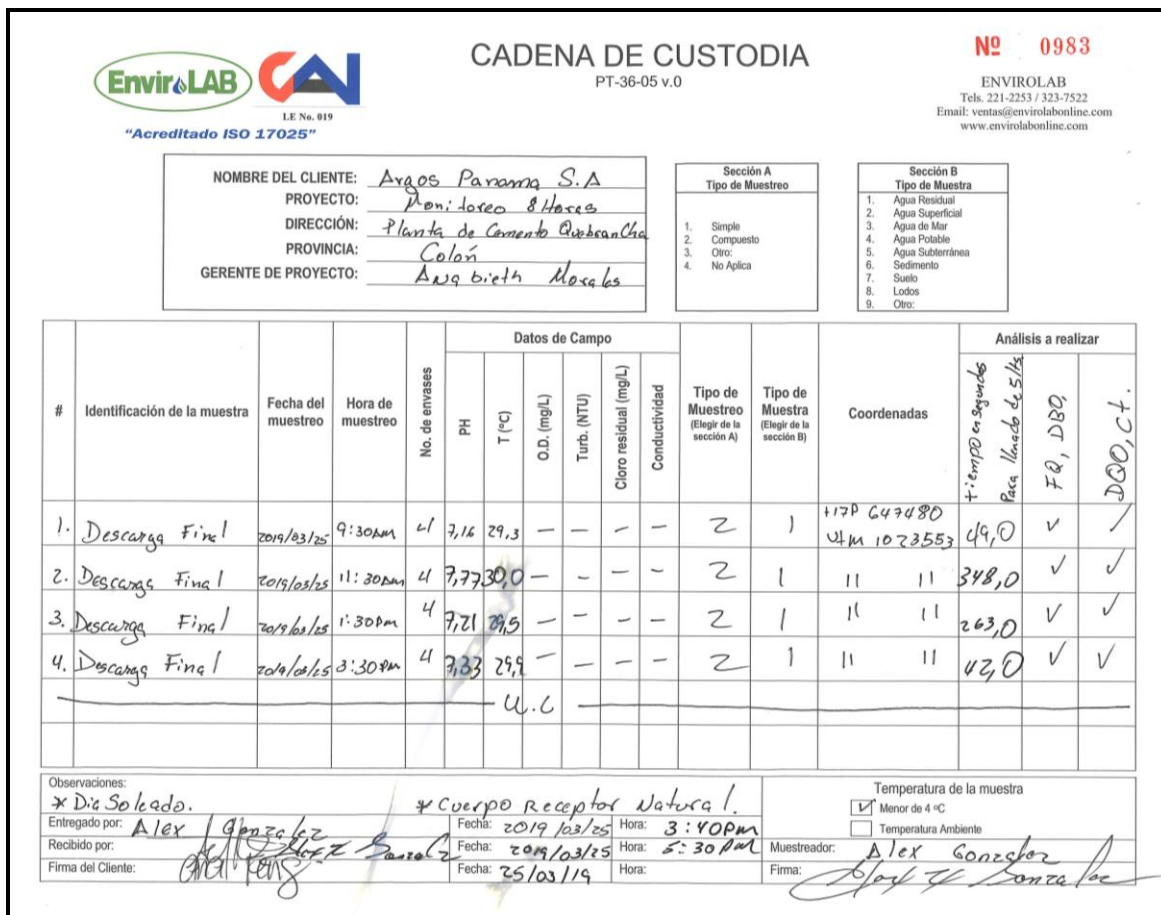 EnviroLAB
CNA
LE No. 019
"Acreditado ISO 17025"
CADENA DE CUSTODIA
PT-36-05 v.0
Nº 0983
ENVIROLAB
Tels. 221-2253 / 323-7522
Email: ventas@envirolabonline.com
www.envirolabonline.com
NOMBRE DEL CLIENTE: Argos Panama S.A
PROYECTO: Monitoreo 8 Horas
DIRECCIÓN: Planta de Cemento Quebrancha
PROVINCIA: Colón
GERENTE DE PROYECTO: Anabieth Morales
Sección A
Tipo de Muestreo
1. Simple
2. Compuesto
3. Otro:
4. No Aplica
Sección B
Tipo de Muestra
1. Agua Residual
2. Agua Superficial
3. Agua de Mar
4. Agua Potable
5. Agua Subterránea
6. Sedimento
7. Suelo
8. Lodos
9. Otro:
# Identificación de la muestra Fecha del muestreo Hora de muestreo No. de envases
Datos de Campo
PH T (ºC) O.D. (mg/L) Turb. (NTU) Cloro residual (mg/L) Conductividad
Tipo de Muestreo (Elegir de la sección A)
Tipo de Muestra (Elegir de la sección B)
Coordenadas
Análisis a realizar
tiempo en segundos Para llenado de 5 lts
FQ, DBO,
DQO, Ct.
1. Descarga Final 2019/03/25 9:30am 4 7,16 29,3 — — — — 2 1 17P 647480 49,0 ✓ /
Utm 1023553
2. Descarga Final 2019/03/25 11:30am 4 7,77 30,0 — — — — 2 1 11 11 348,0 ✓ ✓
3. Descarga Final 2019/03/25 1:30pm 4 7,21 29,5 — — — — 2 1 11 11 263,0 ✓ ✓
4. Descarga Final 2019/03/25 3:30pm 4 7,33 29,9 — — — — 2 1 11 11 42,0 ✓ ✓
U.L
Observaciones:
* Dia Soleado. * Cuerpo Receptor Natural.
Entregado por: Alex Gonzalez Fecha: 2019/03/25 Hora: 3:40pm
Recibido por: Fecha: 2019/03/25 Hora: 5:30pm
Firma del Cliente: Fecha: 25/03/19 Hora:
Temperatura de la muestra
✓ Menor de 4 ºC
Temperatura Ambiente
Muestreador: Alex Gonzalez
Firma: